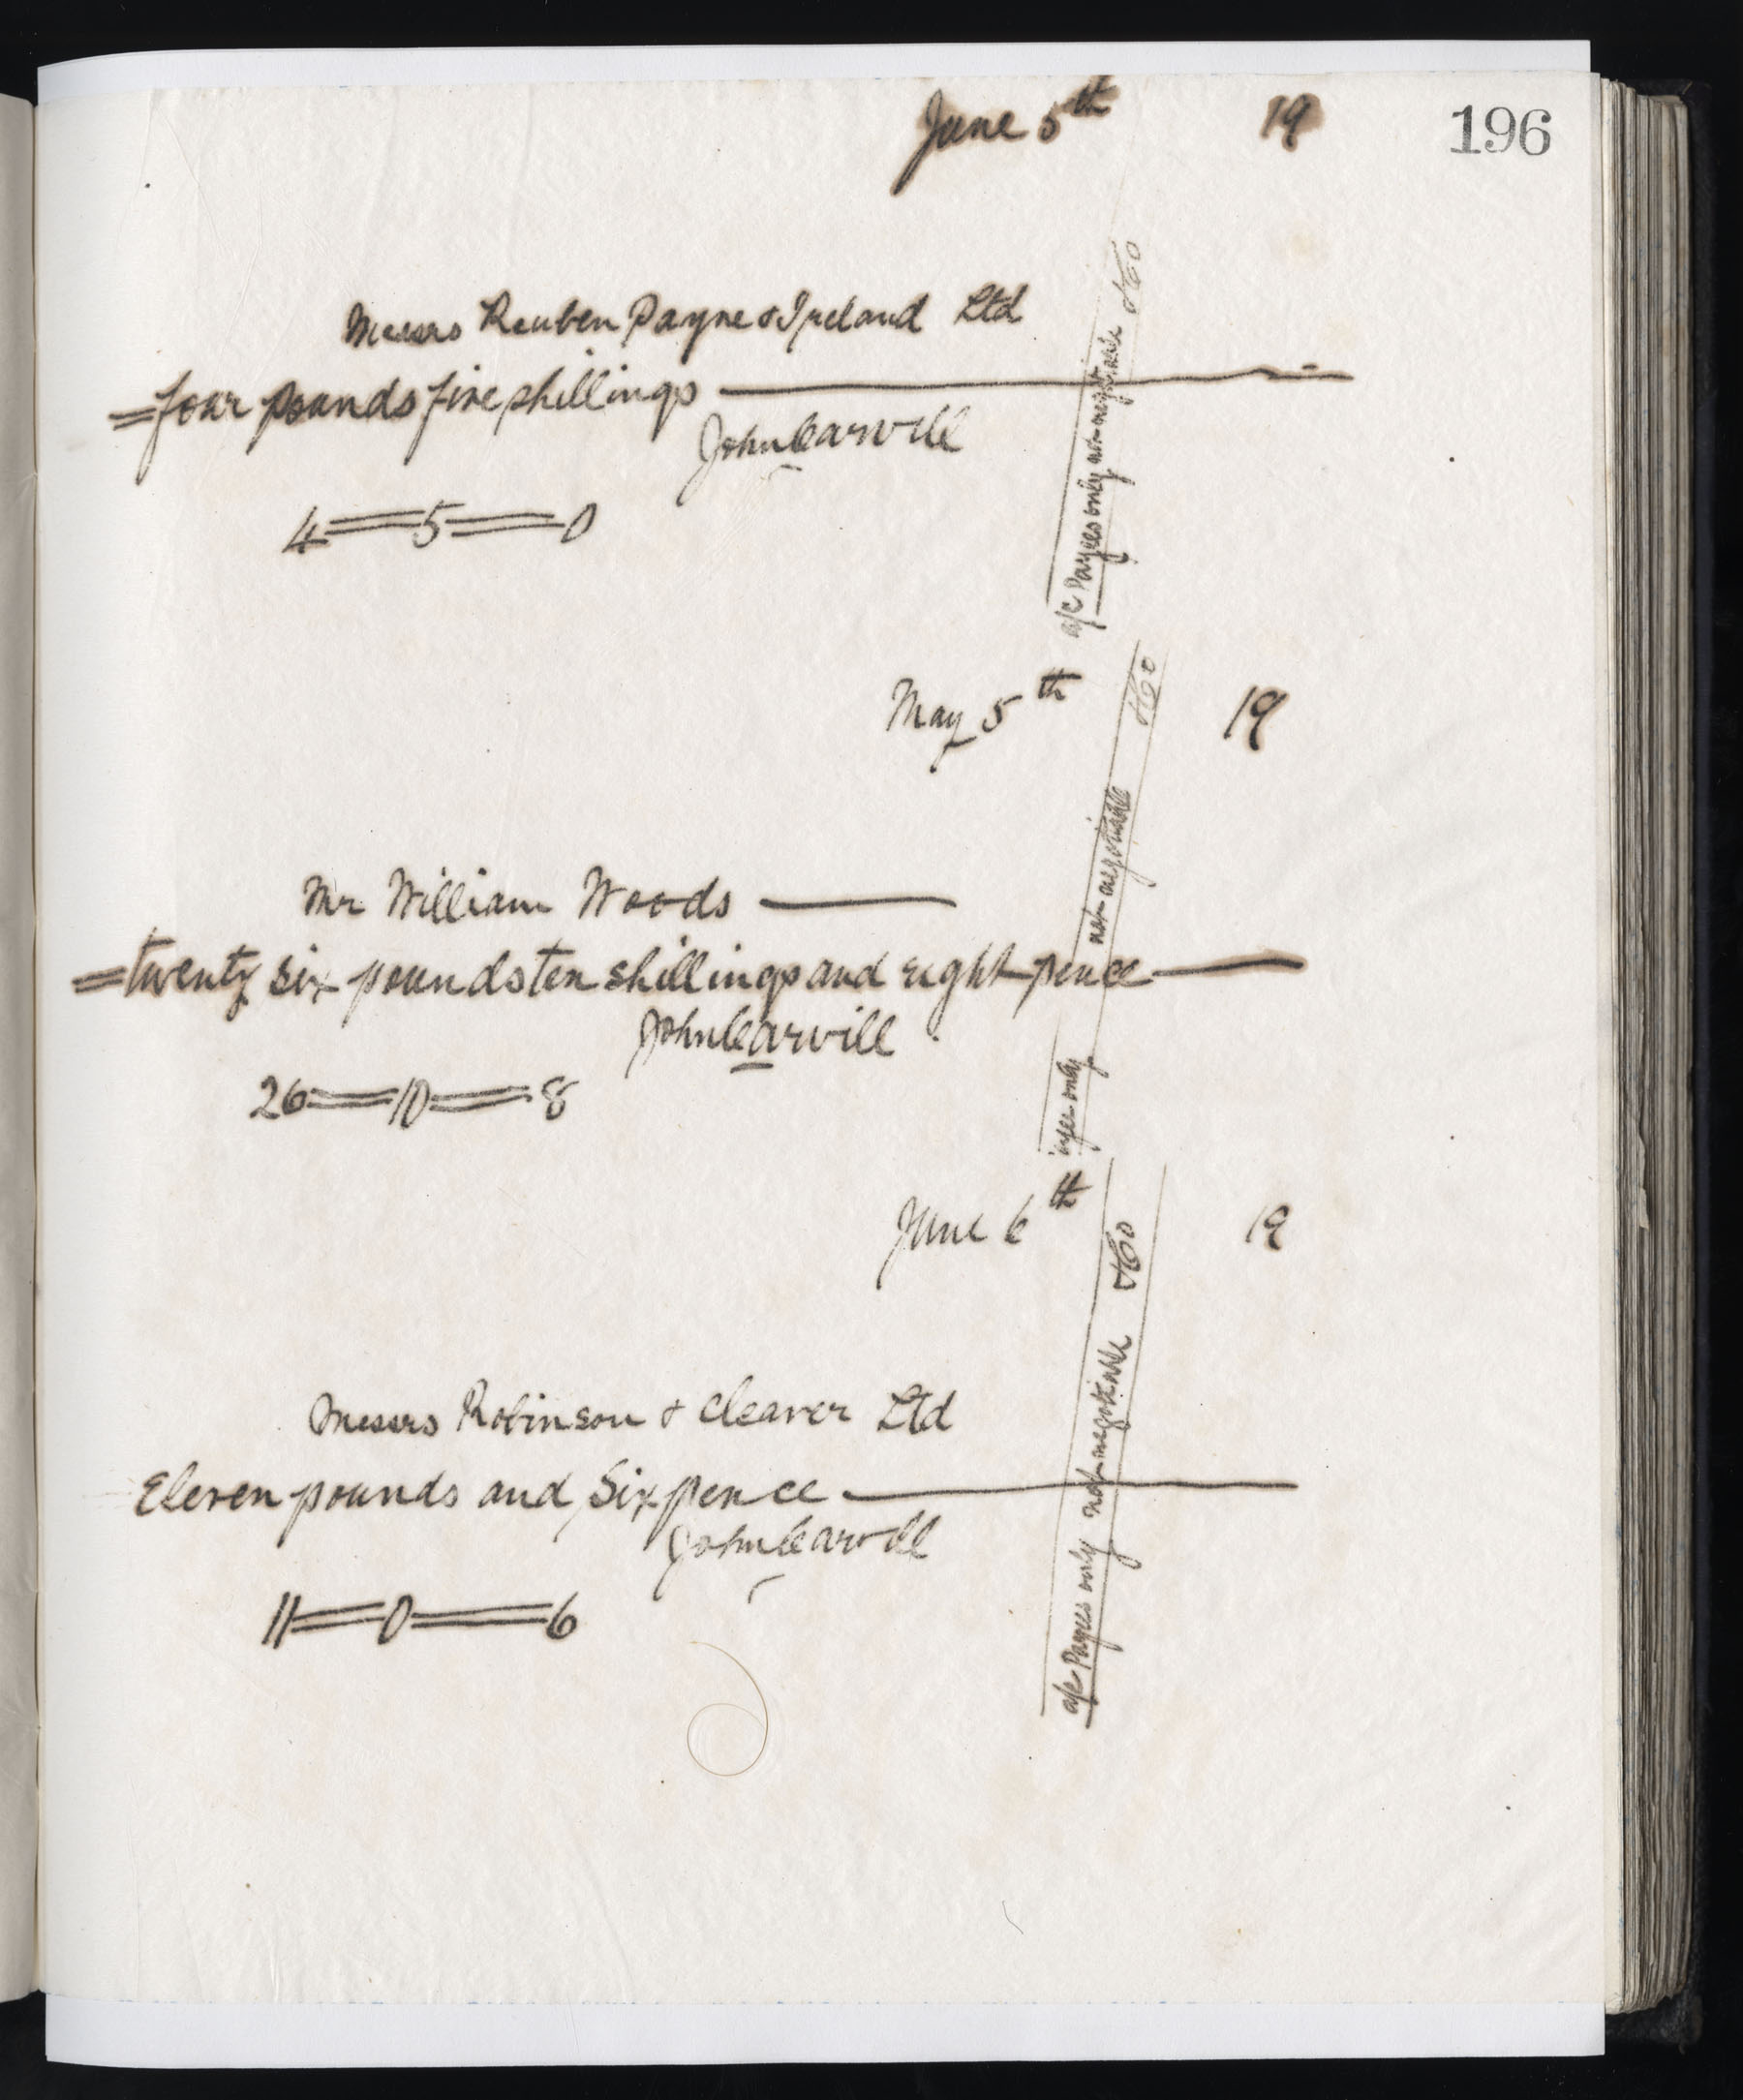 196
June 5th 19
Messrs Reuben Payne & Ireland Ltd
=four pounds five shillings
John Carvill
4==5==0
a/c Payees only not negotiable & Co
May 5th 19
Mr William Woods
=twenty six pounds ten shillings and eight pence
John Carvill
26==10==8
only not negotiable & Co
June 6th 19
Messrs Robinson & Cleaver Ltd
Eleven pounds and Sixpence
John Carvill
11==0==6
a/c Payees only not negotiable & Co